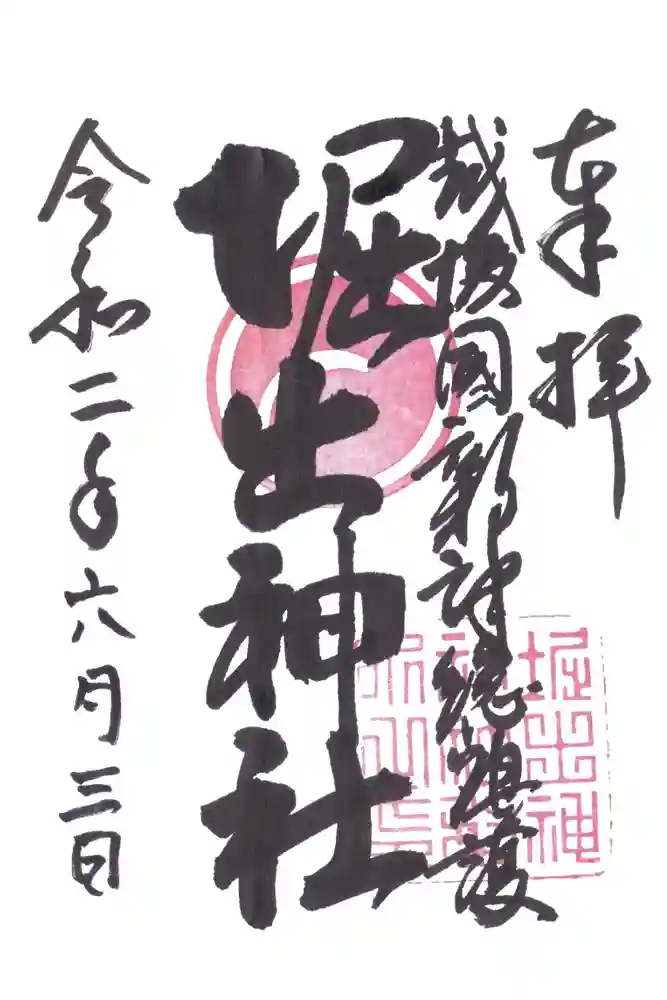 奉拝
越後國新津総鎮護
堀出神社
令和二年六月三日
堀出神